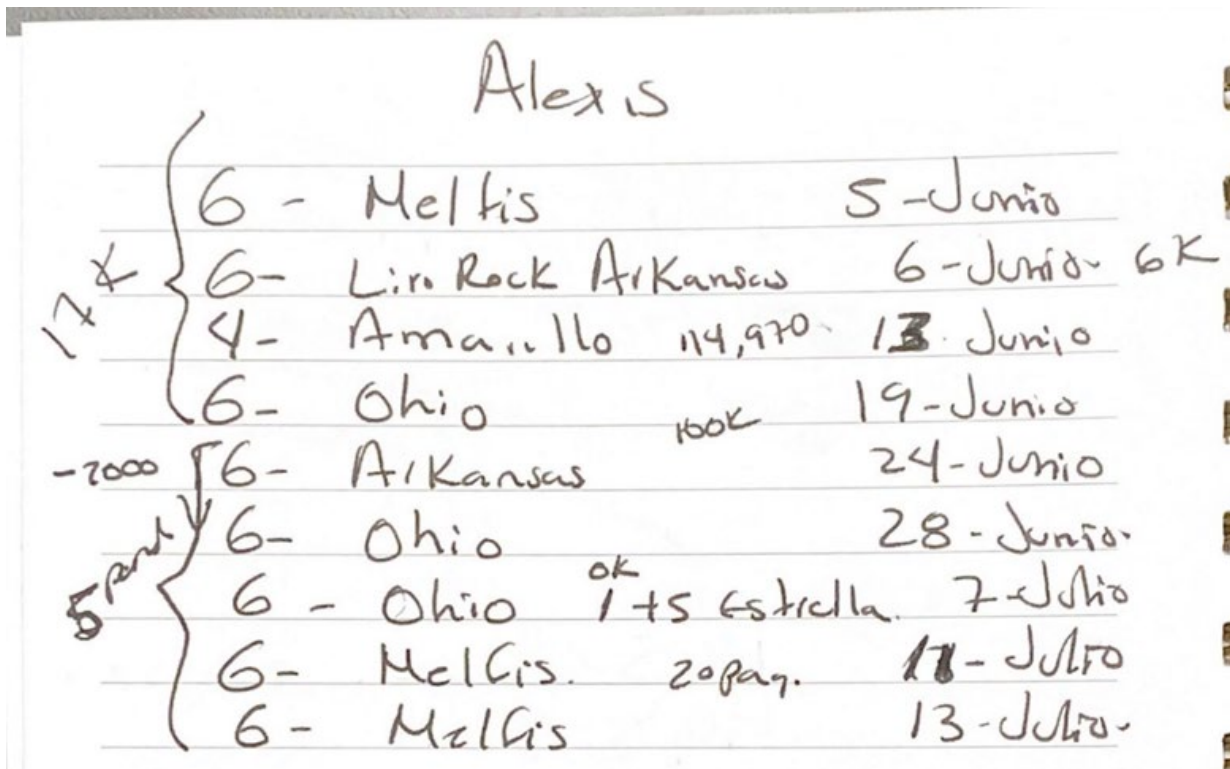 Alexis
6 - Melfis 5-Junio
17K 6- Liro Rock Arkansas 6-Junio- 6K
4- Amarillo 114,970 13. Junio
6- Ohio 19-Junio
100K
-2000 6- Arkansas 24-Junio
6- Ohio 28-Junio.
5 6 - Ohio ok 1+5 Estrella. 7-Julio
6- Melfis. 20 pag. 11-Julio
6- Melfis 13-Julio.